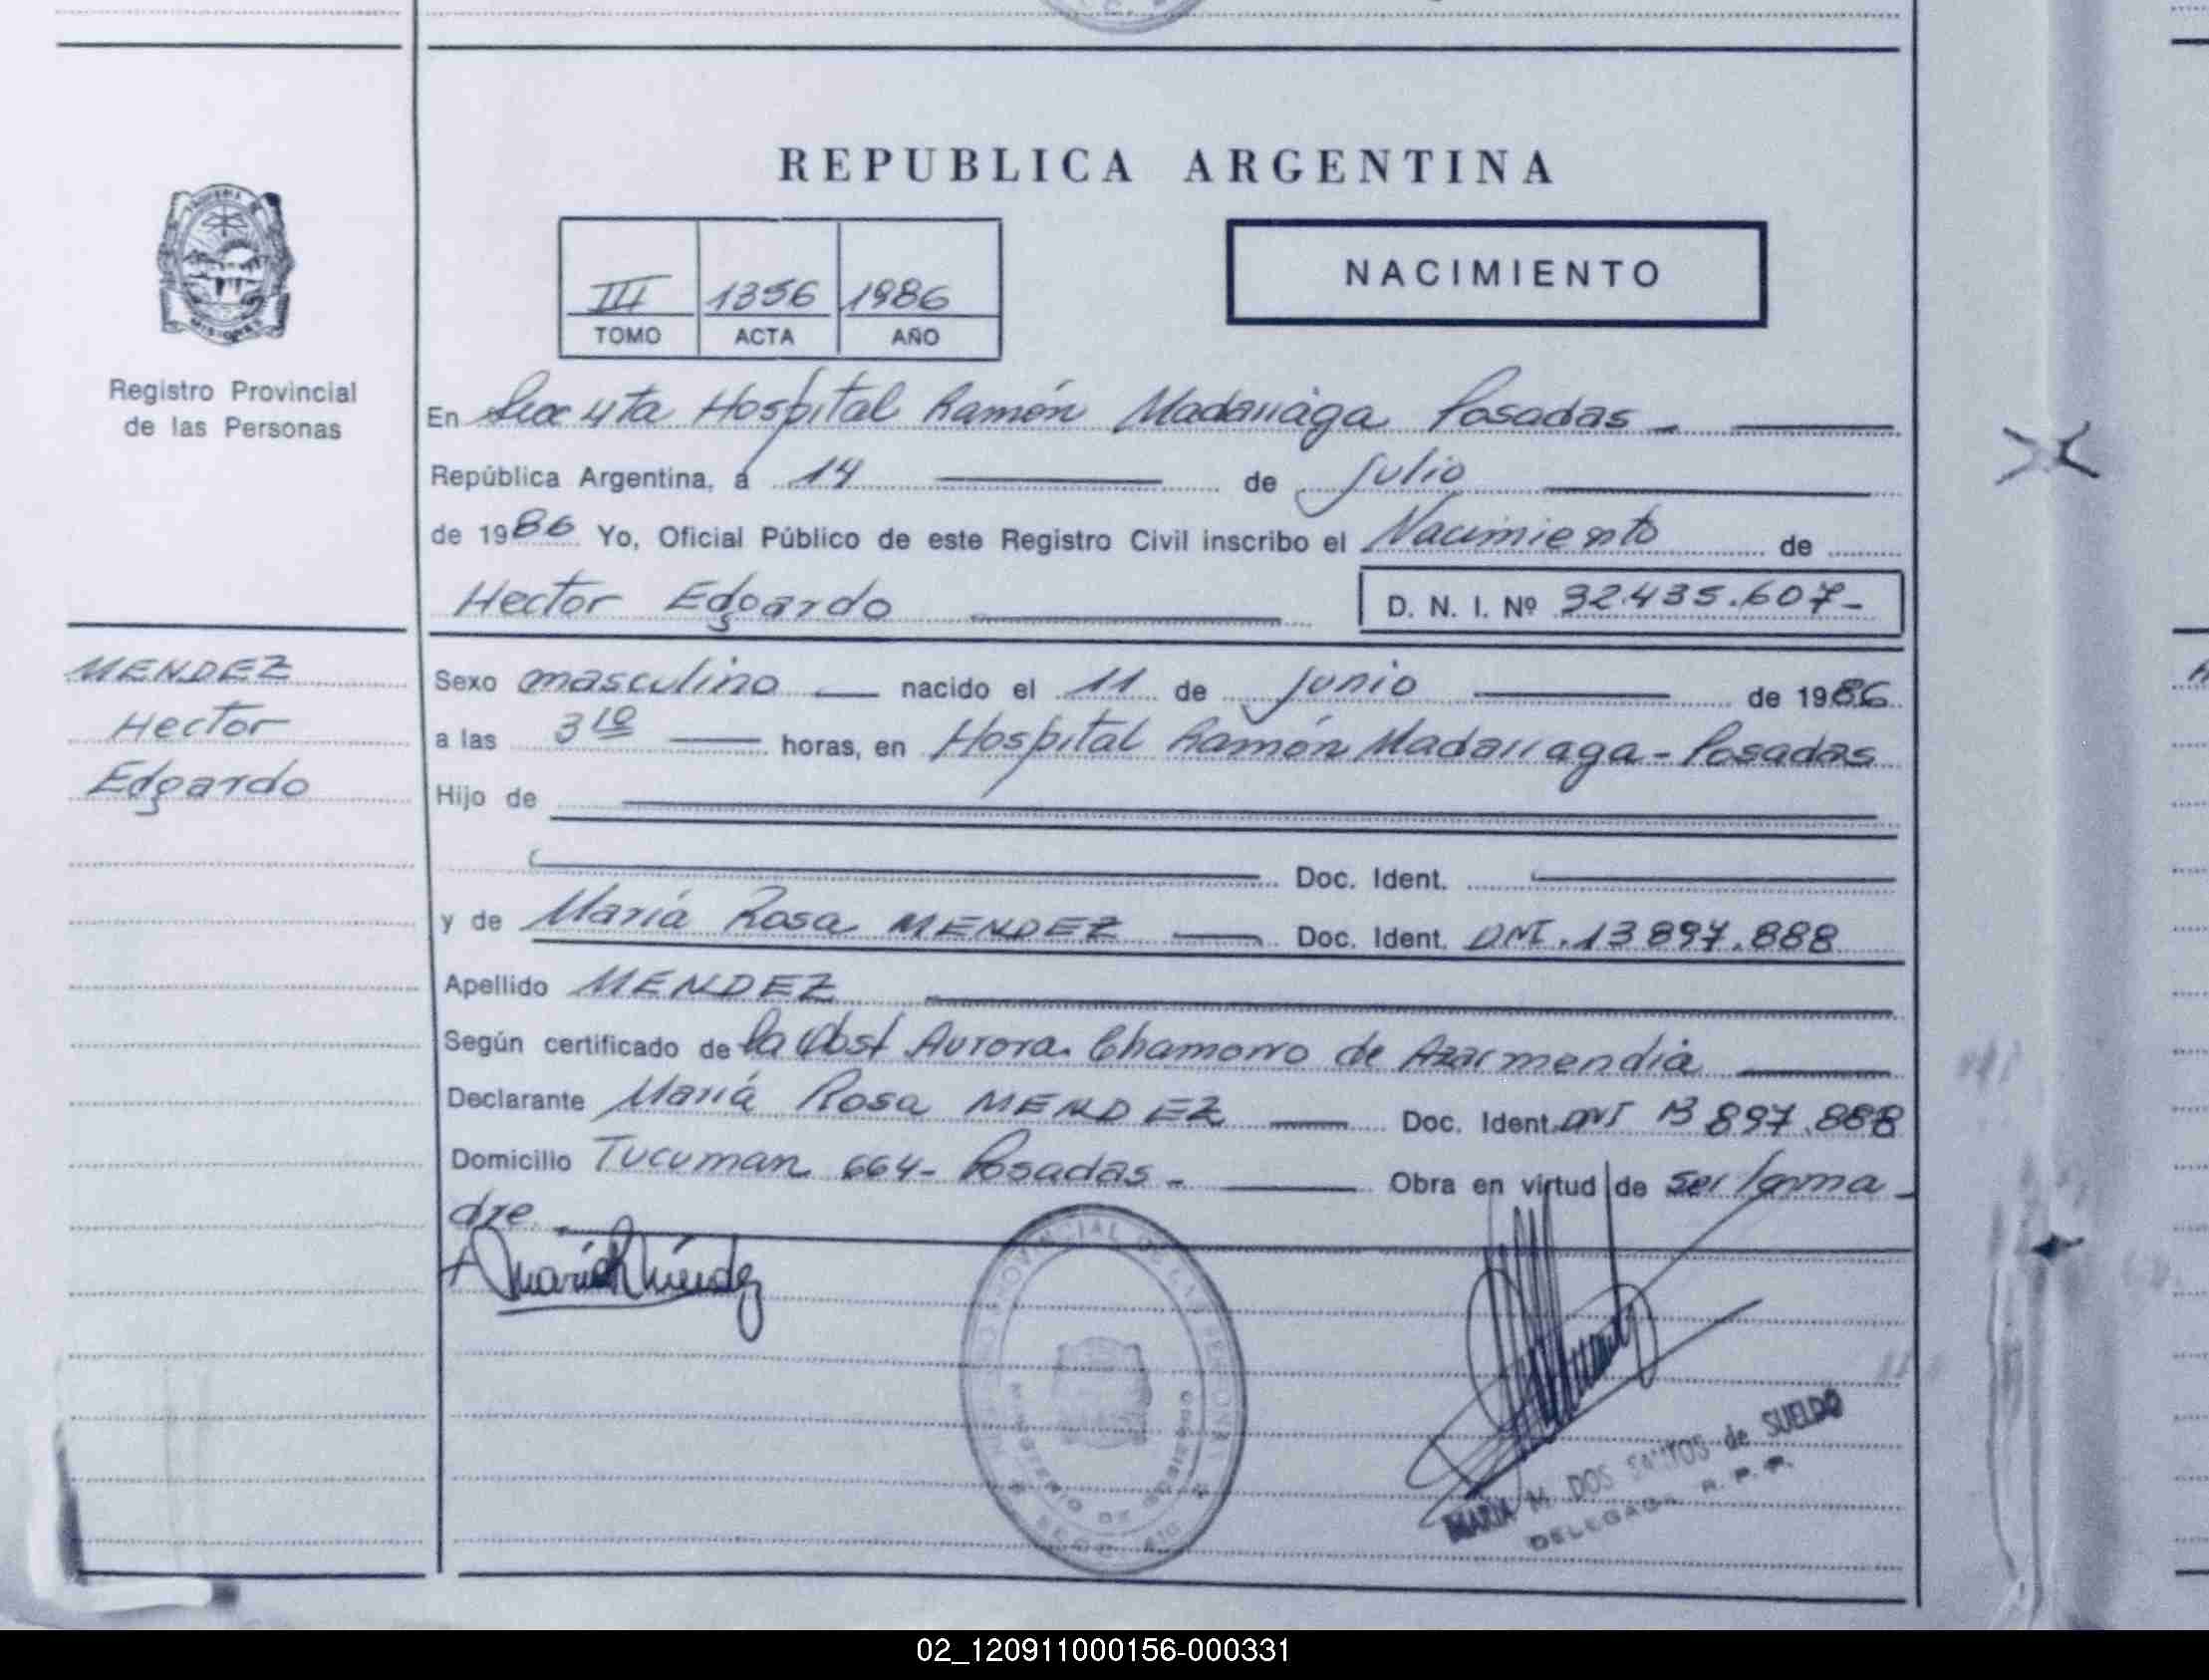 REPUBLICA ARGENTINA
NACIMIENTO
III 1356 1986
TOMO ACTA AÑO
Registro Provincial
de las Personas
En Secc 4ta Hospital Ramón Madariaga Posadas
República Argentina, a 14 de Julio
de 1986 Yo, Oficial Público de este Registro Civil inscribo el Nacimiento de
Hector Edgardo D. N. I. Nº 32.435.607-
MENDEZ
Hector
Edgardo
Sexo masculino nacido el 11 de Junio de 1986
a las 3 10 horas, en Hospital Ramón Madariaga - Posadas
Hijo de
Doc. Ident.
y de María Rosa MENDEZ Doc. Ident. DNI. 13 897.888
Apellido MENDEZ
Según certificado de la Obst Aurora Chamorro de Azarmendia
Declarante María Rosa MENDEZ Doc. Ident. DNI 13 897.888
Domicilio Tucuman 664- Posadas - Obra en virtud de ser la ma-
dre
María R Méndez
MARIA M. DOS SANTOS de SUELDO
DELEGADA R. P. P.
02_120911000156-000331